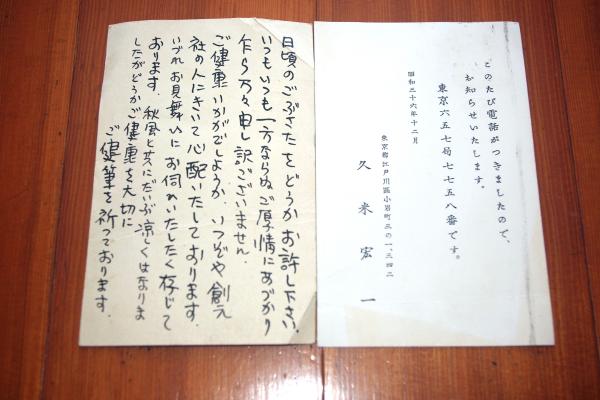 このたび電話がつきましたので、
お知らせいたします。
東京六五七局七七五八番です。
昭和三十六年十二月
東京都江戸川區小岩町三の一、三四二
久米宏一
日頃のごぶさたをどうかお許し下さい。
いつもいつも一方ならぬご厚情にあづかり
乍ら万々申し訳ございません。
ご健康いかがでしようか、いつぞや創元
社の人にきいて心配いたしております。
いづれお見舞いにお伺いいたしたく存じて
おります。秋風と共にだいぶ涼しくはなりま
したがどうかご健康を大切に
ご健筆を祈っております。